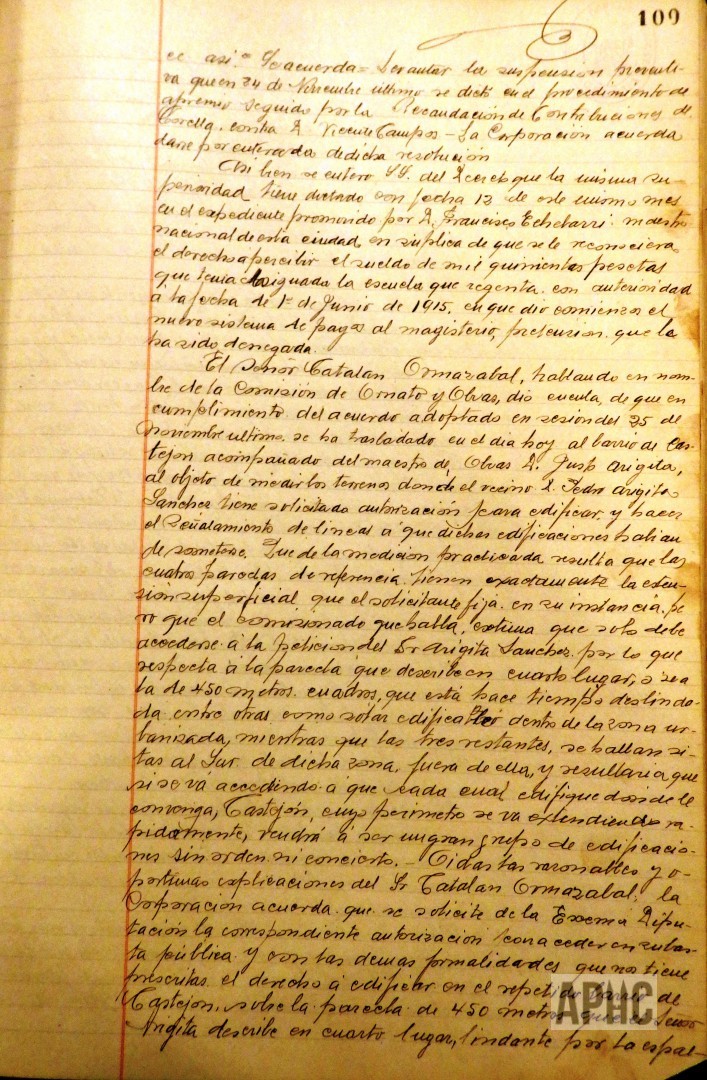 109
se acuerda = Levantar la suspensión preventi-
va que en 24 de Noviembre ultimo se dictó en el procedimiento de
apremio seguido por la Recaudación de Contribuciones de
Corella, contra D. Vicente Campos - La Corporación acuerda
darse por enterada de dicha resolución
Asi bien se enteró S.S. del Decreto que la misma su-
perioridad tiene dictado con fecha 13 de este mismo mes
en el expediente promovido por D. Francisco Echebarri maestro
nacional de esta ciudad, en suplica de que se le reconociera
el derecho a percibir el sueldo de mil quinientas pesetas
que tenia asignada la escuela que regenta con anterioridad
a la fecha de 1º de Junio de 1915, en que dio comienzo el
nuevo sistema de pagos al magisterio, pretension que le
ha sido denegada.
El Señor Catalan Ormazabal, hablando en nom-
bre de la Comisión de Ornato y Obras, dió cuenta, de que en
cumplimiento del acuerdo adoptado en sesion del 25 de
Noviembre ultimo se ha trasladado en el dia hoy al barrio de Cas-
tejon acompañado del maestro de Obras D. Justo Arigita,
al objeto de medir los terrenos donde el vecino D. Pedro Arigita
Sanchez tiene solicitado autorización para edificar y hacer
el señalamiento de lineas á que dichas edificaciones habian
de someterse. Que de la medición practicada resulta que las
cuatro parcelas de referencia tienen exactamente la exten-
sion superficial que el solicitante fija en su instancia, pe-
ro que el comisionado que habla, estima que solo debe
accederse á la peticion del Sr Arigita Sanchez por lo que
respecta á la parcela que describe en cuarto lugar, o sea
la de 450 metros cuadros, que está hace tiempo deslinda-
da entre otras como solar edificable dentro de la zona ur-
banizada, mientras que las tres restantes, se hallan si-
tas al Sur de dicha zona, fuera de ella, y resultaria que
si se vá accediendo á que cada cual edifique donde le
convenga, Castejón, cuyo perimetro se va extendiendo ra-
pidamente, vendrá á ser un gran grupo de edificacio-
nes sin orden ni concierto. - Oidas las razonables y o-
portunas explicaciones del Sr Catalan Ormazabal, la
Corporación acuerda que se solicite de la Excma Dipu-
tación la correspondiente autorización para ceder en subas-
ta pública y con las demas formalidades que nos tiene
prescritas el derecho á edificar en el repetido barrio de
Castejon, sobre la parcela de 450 metros que el Señor
Arigita describe en cuarto lugar, lindante por la espal-
APHC